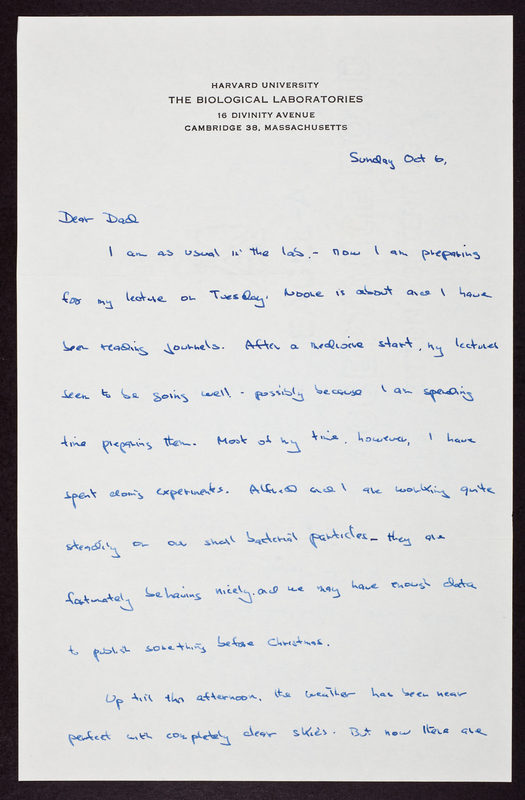 HARVARD UNIVERSITY
THE BIOLOGICAL LABORATORIES
16 DIVINITY AVENUE
CAMBRIDGE 38, MASSACHUSETTS
Sunday Oct 6,
Dear Dad
I am as usual in the lab. - now I am preparing
for my lecture on Tuesday. Noone is about and I have
been reading journals. After a mediocre start, my lectures
seem to be going well - possibly because I am spending
time preparing them. Most of my time, however, I have
spent doing experiments. Alfred and I are working quite
steadily on our small bacterial particles - they are
fortunately behaving nicely and we may have enough data
to publish something before Christmas.
Up till this afternoon, the weather has been near
perfect with completely clear skies. But now there are